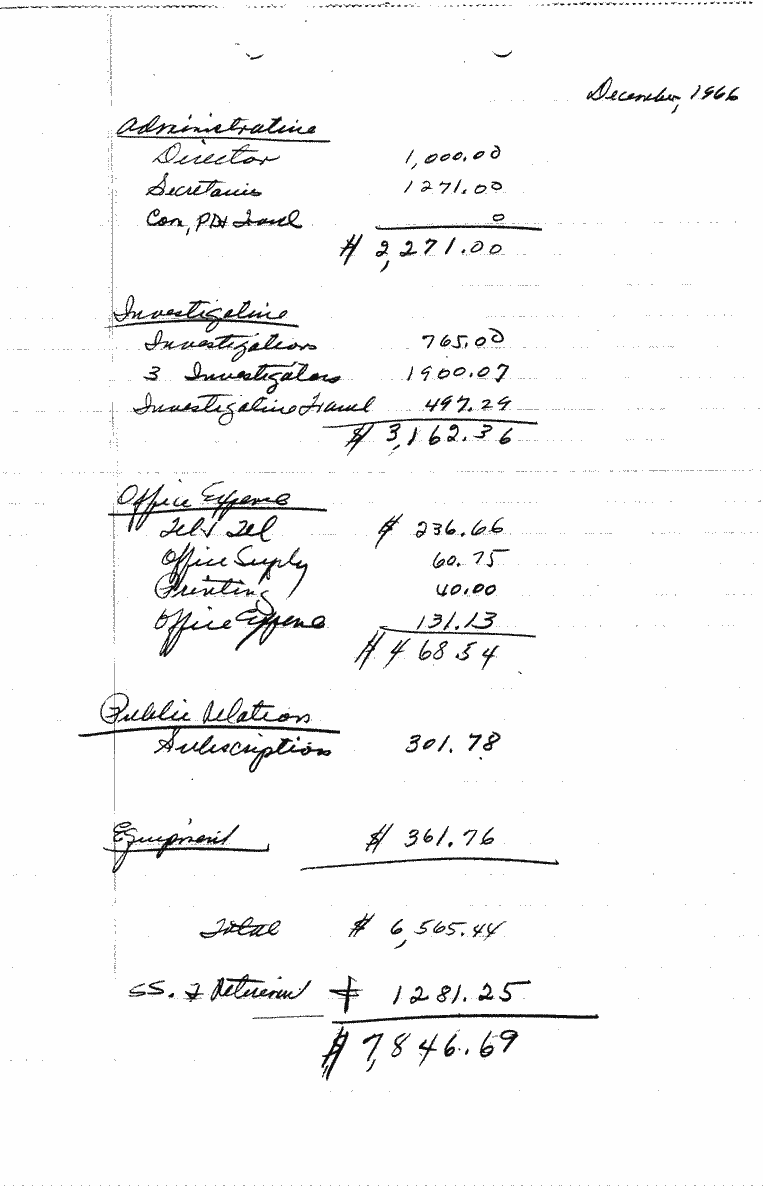 December, 1966
Administrative
Director 1,000.00
Secretaries 1271.00
Com, PDH Travel 0
$ 2,271.00
Investigative
Investigations 765.00
3 Investigators 1900.07
Investigative Travel 497.29
$ 3,162.36
Office Expense
Tel & Tel $ 236.66
Office Supply 60.75
Printing 40.00
Office Expense 131.13
$ 468.54
Public Relations
Subscriptions 301.78
Equipment $ 361.76
Total $ 6,565.44
SS. & Retirement + 1281.25
$ 7,846.69